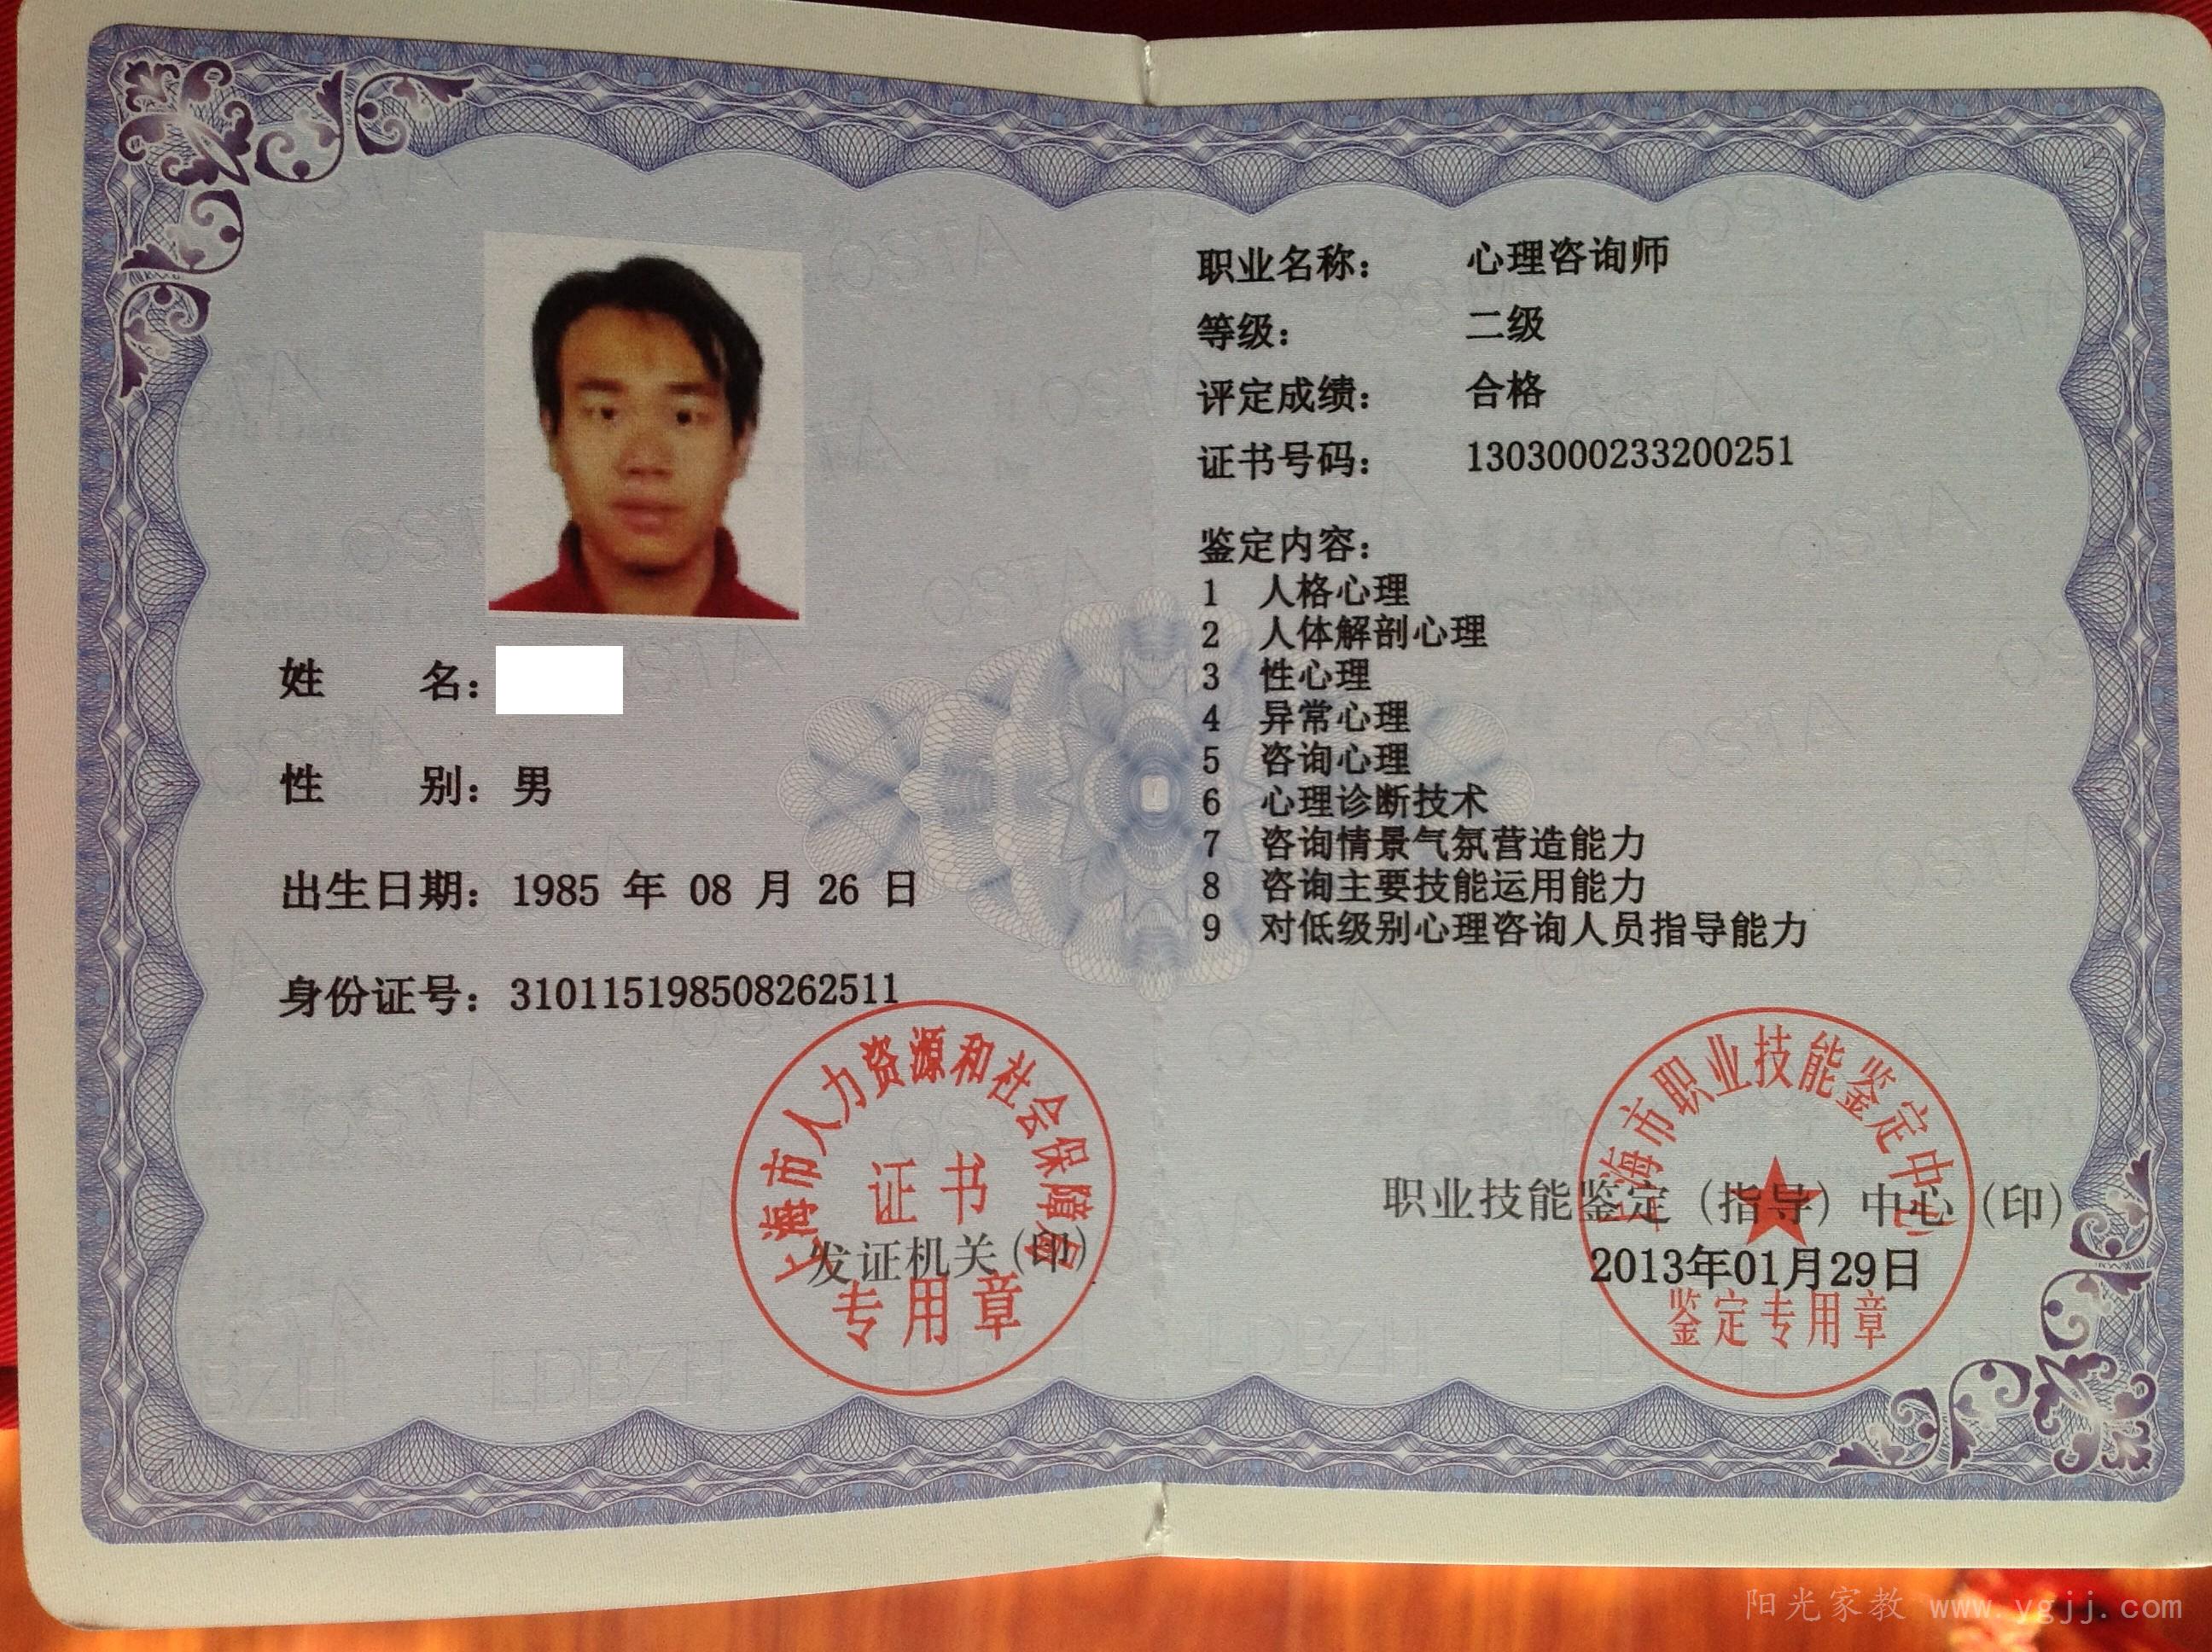 姓 名：
性 别：男
出生日期：1985 年 08 月 26 日
身份证号：310115198508262511
上海市人力资源和社会保障局
证书
发证机关(印)
专用章
职业名称： 心理咨询师
等级： 二级
评定成绩： 合格
证书号码： 1303000233200251
鉴定内容：
1 人格心理
2 人体解剖心理
3 性心理
4 异常心理
5 咨询心理
6 心理诊断技术
7 咨询情景气氛营造能力
8 咨询主要技能运用能力
9 对低级别心理咨询人员指导能力
上海市职业技能鉴定中心
职业技能鉴定（指导）中心（印）
2013年01月29日
鉴定专用章
阳光家教 www.ygjj.com